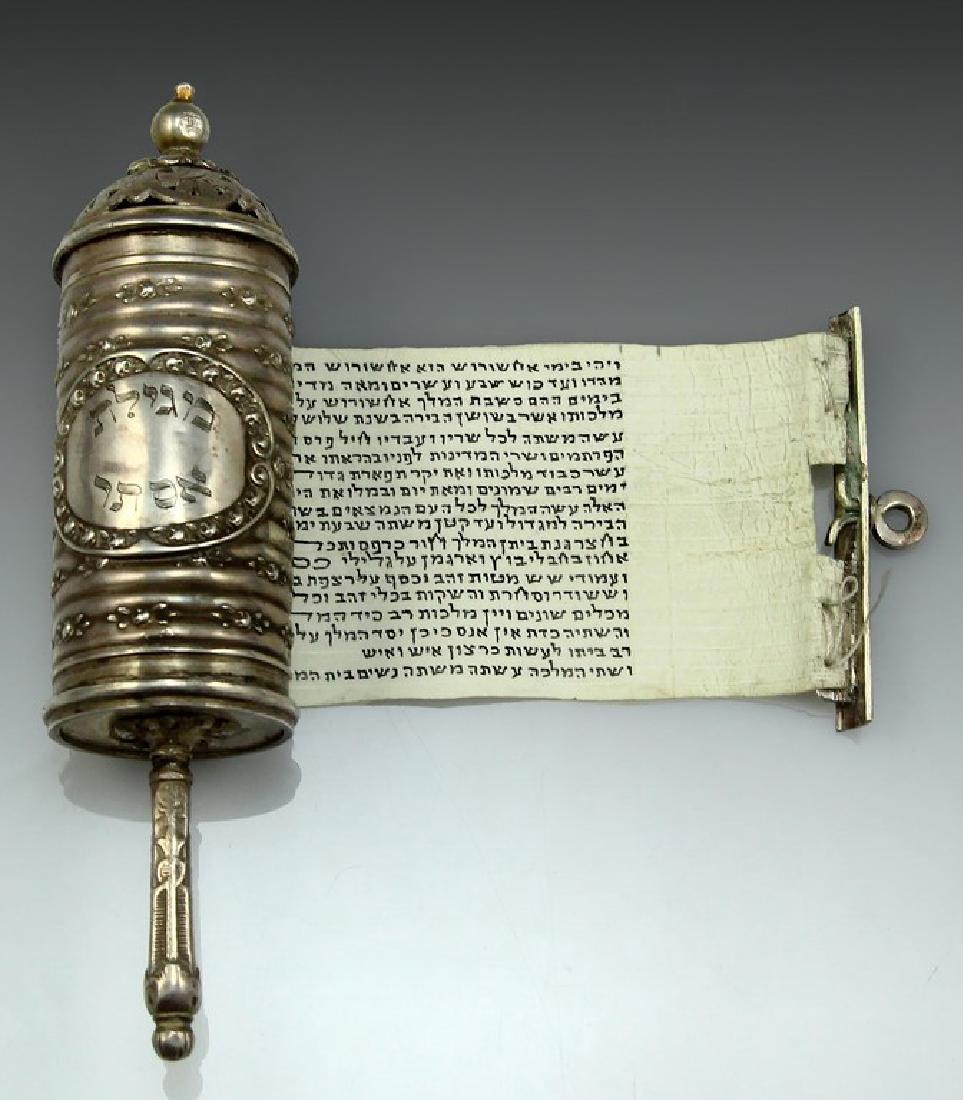 מגילת
אסתר
ויהי בימי אחשורוש הוא אחשורוש
מהדו ועד כוש שבע ועשרים ומאה
בימים ההם כשבת המלך אחשורוש על
מלכותו אשר בשושן הבירה בשנת שלוש
עשה משתה לכל שריו ועבדיו חיל פרס
הפרתמים ושרי המדינות לפניו בהראתו
עשר כבוד מלכותו ואת יקר תפארת
ימים רבים שמונים ומאת יום ובמלואת
האלה עשה המלך לכל העם הנמצאים
הבירה למגדול ועד קטן משתה שבעת
בחצר גנת ביתן המלך חור כרפס
אחוז בחבלי בוץ וארגמן על גלילי
ועמודי שש מטות זהב וכסף על רצפת
ושש ודר וסחרת והשקות בכלי זהב
מכלים שונים ויין מלכות רב כיד
והשתיה כדת אין אנס כי כן יסד המלך על
רב ביתו לעשות כרצון איש ואיש
ושתי המלכה עשתה משתה נשים בית